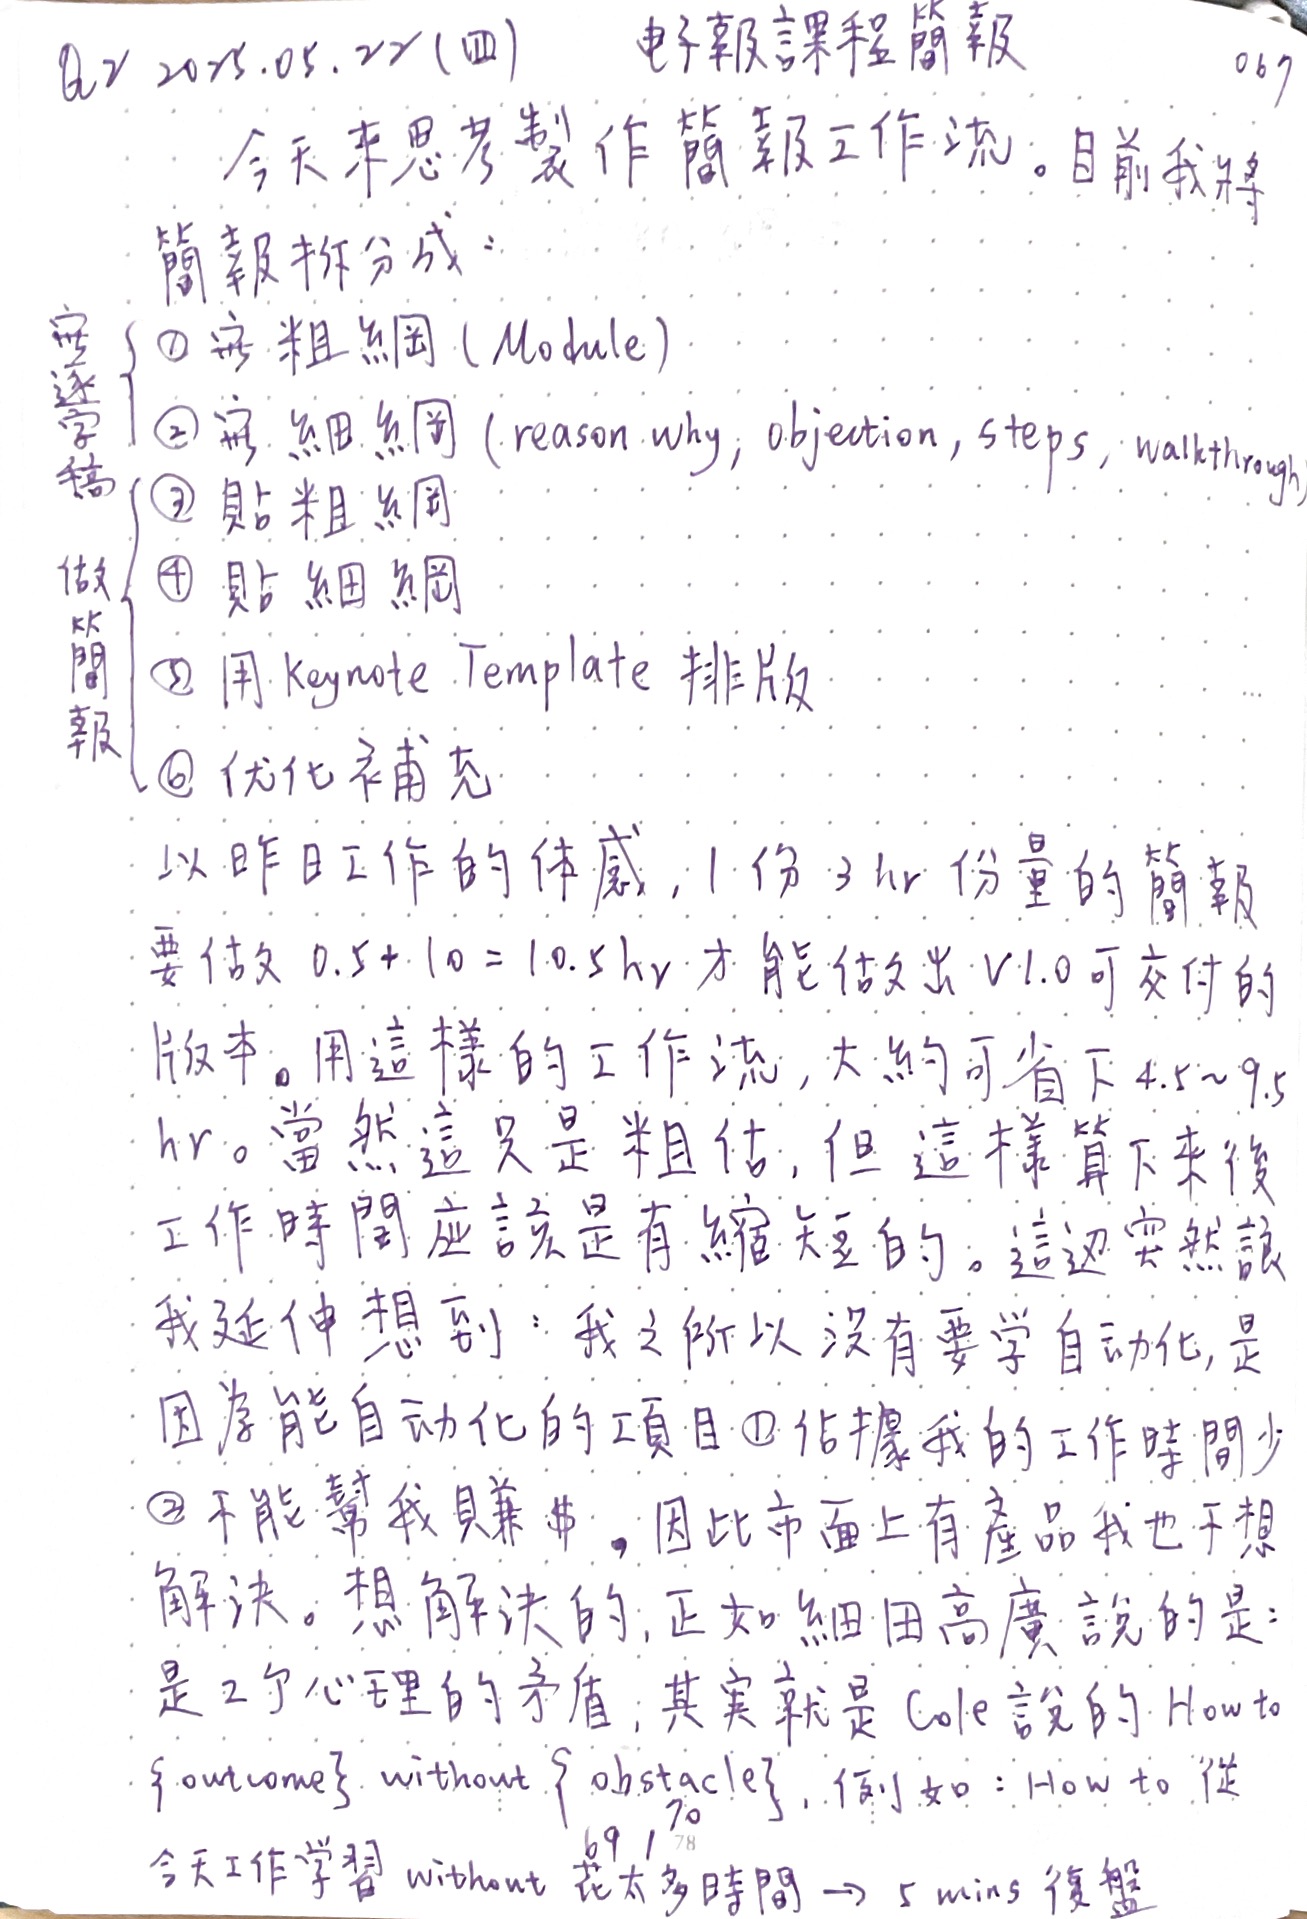 Q2 2025.05.22(四) 电子報課程簡報 067
今天來思考製作簡報工作流。目前我將
簡報拆分成：
寫逐字稿
① 寫粗綱(Module)
② 寫細綱(reason why, objection, steps, walkthrough)
做簡報
③ 貼粗綱
④ 貼細綱
⑤ 用 Keynote Template 排版
⑥ 优化補充
以昨日工作的体感,1份3hr份量的簡報
要做0.5+10=10.5hr才能做出V1.0可交付的
版本。用這樣的工作流,大約可省下4.5~9.5
hr。當然這只是粗估,但這樣算下來後
工作時間应該是有縮短的。這边突然讓
我延伸想到：我之所以沒有要学自动化,是
因為能自动化的項目①佔據我的工作時間少
②不能幫我賺$。因此市面上有產品我也不想
解決。想解決的,正如細田高廣說的是：
是2个心理的矛盾,其実就是Cole說的How to
{outcome} without {obstacle},例如：How to 從
69, 70
78
今天工作学習 without 花太多時間 → 5 mins 復盤